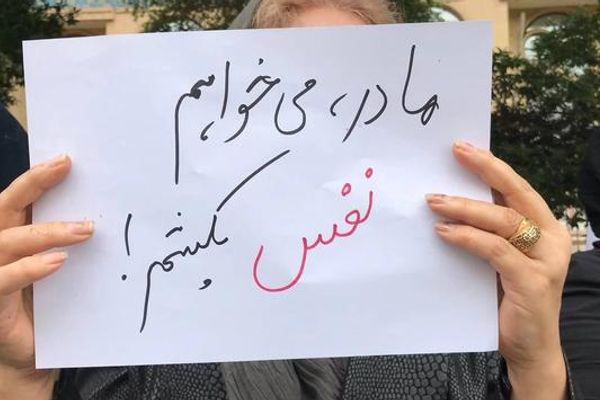 مادر، می‌خواهم
نفس بکشم!